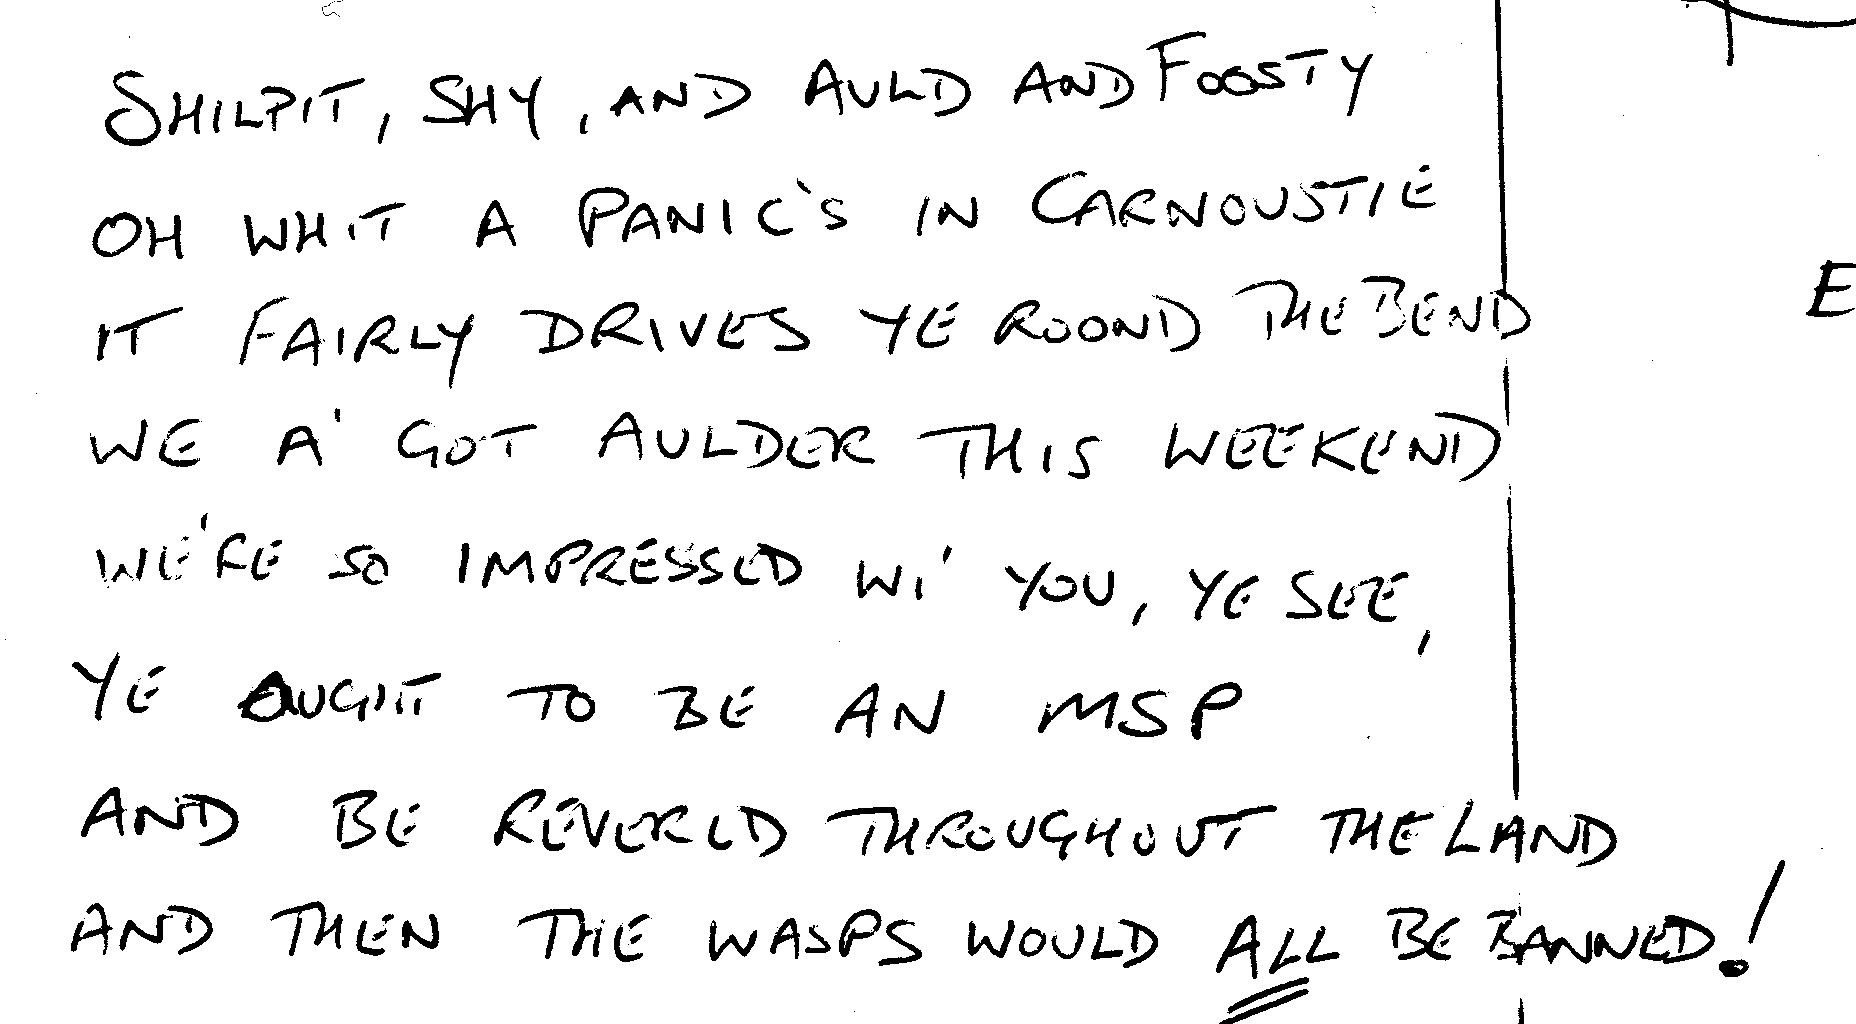 SHILPIT, SHY, AND AULD AND FOOSTY
OH WHIT A PANIC'S IN CARNOUSTIE
IT FAIRLY DRIVES YE ROOND THE BEND
WE A' GOT AULDER THIS WEEKEND
WE'RE SO IMPRESSED WI' YOU, YE SEE,
YE OUGHT TO BE AN MSP
AND BE REVERED THROUGHOUT THE LAND
AND THEN THE WASPS WOULD ALL BE BANNED!
E